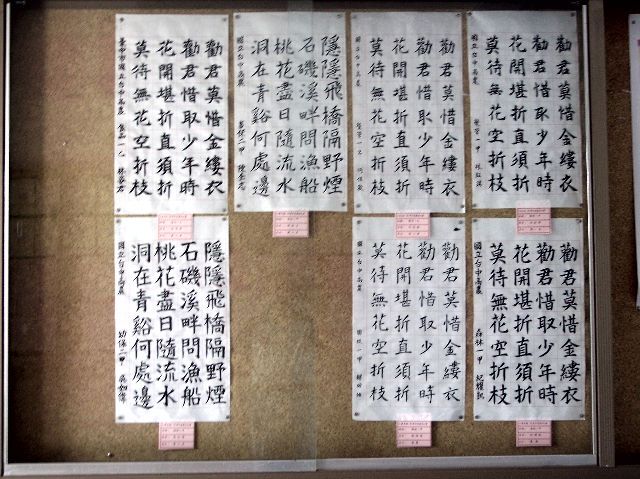 勸君莫惜金縷衣
勸君惜取少年時
花開堪折直須折
莫待無花空折枝
國立台中高農
勸君莫惜金縷衣
勸君惜取少年時
花開堪折直須折
莫待無花空折枝
國立台中高農
隱隱飛橋隔野煙
石磯溪畔問漁船
桃花盡日隨流水
洞在青谿何處邊
國立台中高農 二甲
勸君莫惜金縷衣
勸君惜取少年時
花開堪折直須折
莫待無花空折枝
臺中市國立台中高農
勸君莫惜金縷衣
勸君惜取少年時
花開堪折直須折
莫待無花空折枝
國立台中高農 森林一甲
勸君莫惜金縷衣
勸君惜取少年時
花開堪折直須折
莫待無花空折枝
國立台中高農 一甲
隱隱飛橋隔野煙
石磯溪畔問漁船
桃花盡日隨流水
洞在青谿何處邊
國立台中高農 幼保二甲